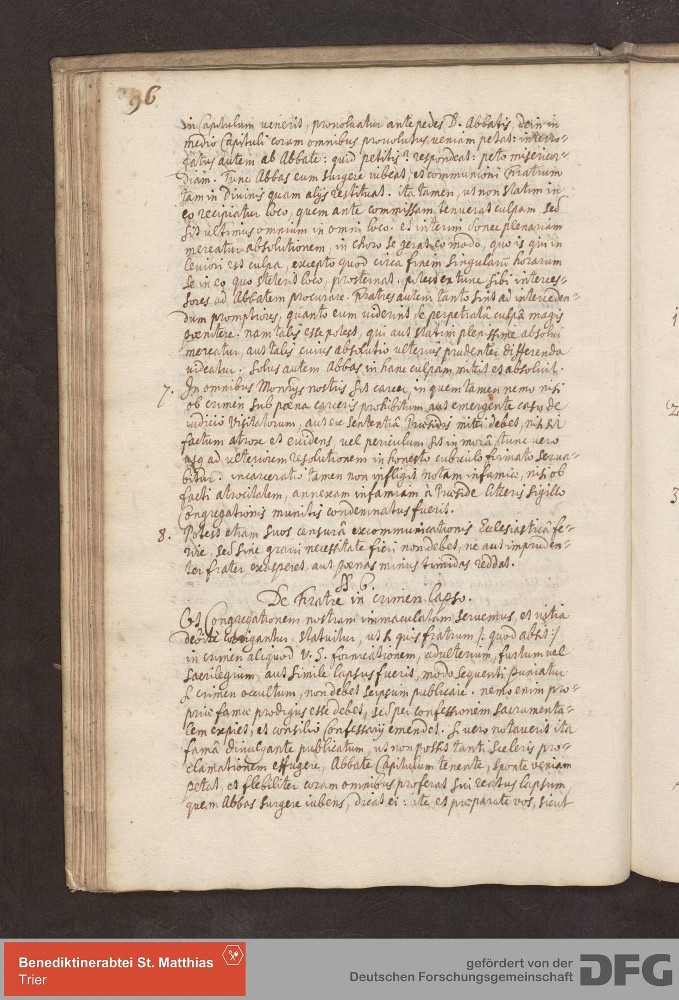 96
in Capitulum venerit, provolvatur ante pedes D. Abbatis, dein in
medio Capituli coram omnibus provolutus veniam petat: interro-
gatus autem ab Abbate: quid petitis? respondeat: peto misericor-
diam. Tunc Abbas eum surgere iubeat, et communioni Fratrum
tam in Divinis quam alijs restituat. ita tamen, ut non statim in
eo recipiatur loco, quem ante commissam tenuerat culpam, sed
sit ultimus omnium in omni loco. et interim donec plenariam
mereatur absolutionem, in choro se gerat eo modo, quo is qui in
leviori est culpa, excepto quod circa finem singularum horarum
se in eo quo steterit loco, prosternat. potest ex tunc sibi interces-
sores ad Abbatem procurare. Fratres autem tanto sint ad interceden-
dum promptiores, quanto eum viderint de perpetrata culpa magis
poenitere. nam talis esse potest, qui aut statim plenissime absolvi
mereatur, aut talis cuius absolutio ulterius prudenter differenda
videatur. Solus autem Abbas in hanc culpam mittet et absolvit.
7. In omnibus Monrijs nostris sit carcer, in quem tamen nemo nisi
ob crimen sub poena carceris prohibitum aut emergente casu de
iudicio Visitatorum, aut ex sententiâ Praesidis mitti debet, nisi sit
factum atrox et evidens, vel periculum sit in morâ, tunc vero
usq ad ulteriorem resolutionem in honesto cubiculo firmato serva-
bitur. incarceratio tamen non infligit notam infamiae, nisi ob
facti atrocitatem, annexam infamiam à Praeside litteris sigillo
Congregationis munitis condemnatus fuerit.
8. Potest etiam suos censurâ excommunicationis Ecclesiasticâ fe-
rire, sed sine gravi necessitate fieri non debet, ne aut impruden-
ter frater exasperet, aut poenas minus timidas reddat.
§ 6.
De Fratre in crimen lapso.
Ut Congregationem nostram immaculatam servemus, et vitia
corrigantur, statuitur, ut si quis fratrum /: quod absit :/
in crimen aliquod V. G. fornicationem, adulterium, furtum vel
sacrilegium, aut simile lapsus fuerit, modo sequenti puniatur
si crimen occultum, non debet seipsum publicare. nemo enim pro-
priae famae prodigus esse debet, sed per confessionem sacramenta-
lem expiet, et consilio Confessarij emendet. Si vero notaverit ita
famâ divulgante publicatum, ut non possit tanti sceleris pro-
clamationem effugere, Abbate Capitulum tenente, sponte veniam
petat, et flebiliter coram omnibus proferat sui reatus lapsum,
quem Abbas surgere iubens, dicat ei: ite, et praeparate vos, sicut
1
2
3
Benediktinerabtei St. Matthias
Trier
gefördert von der
Deutschen Forschungsgemeinschaft
DFG